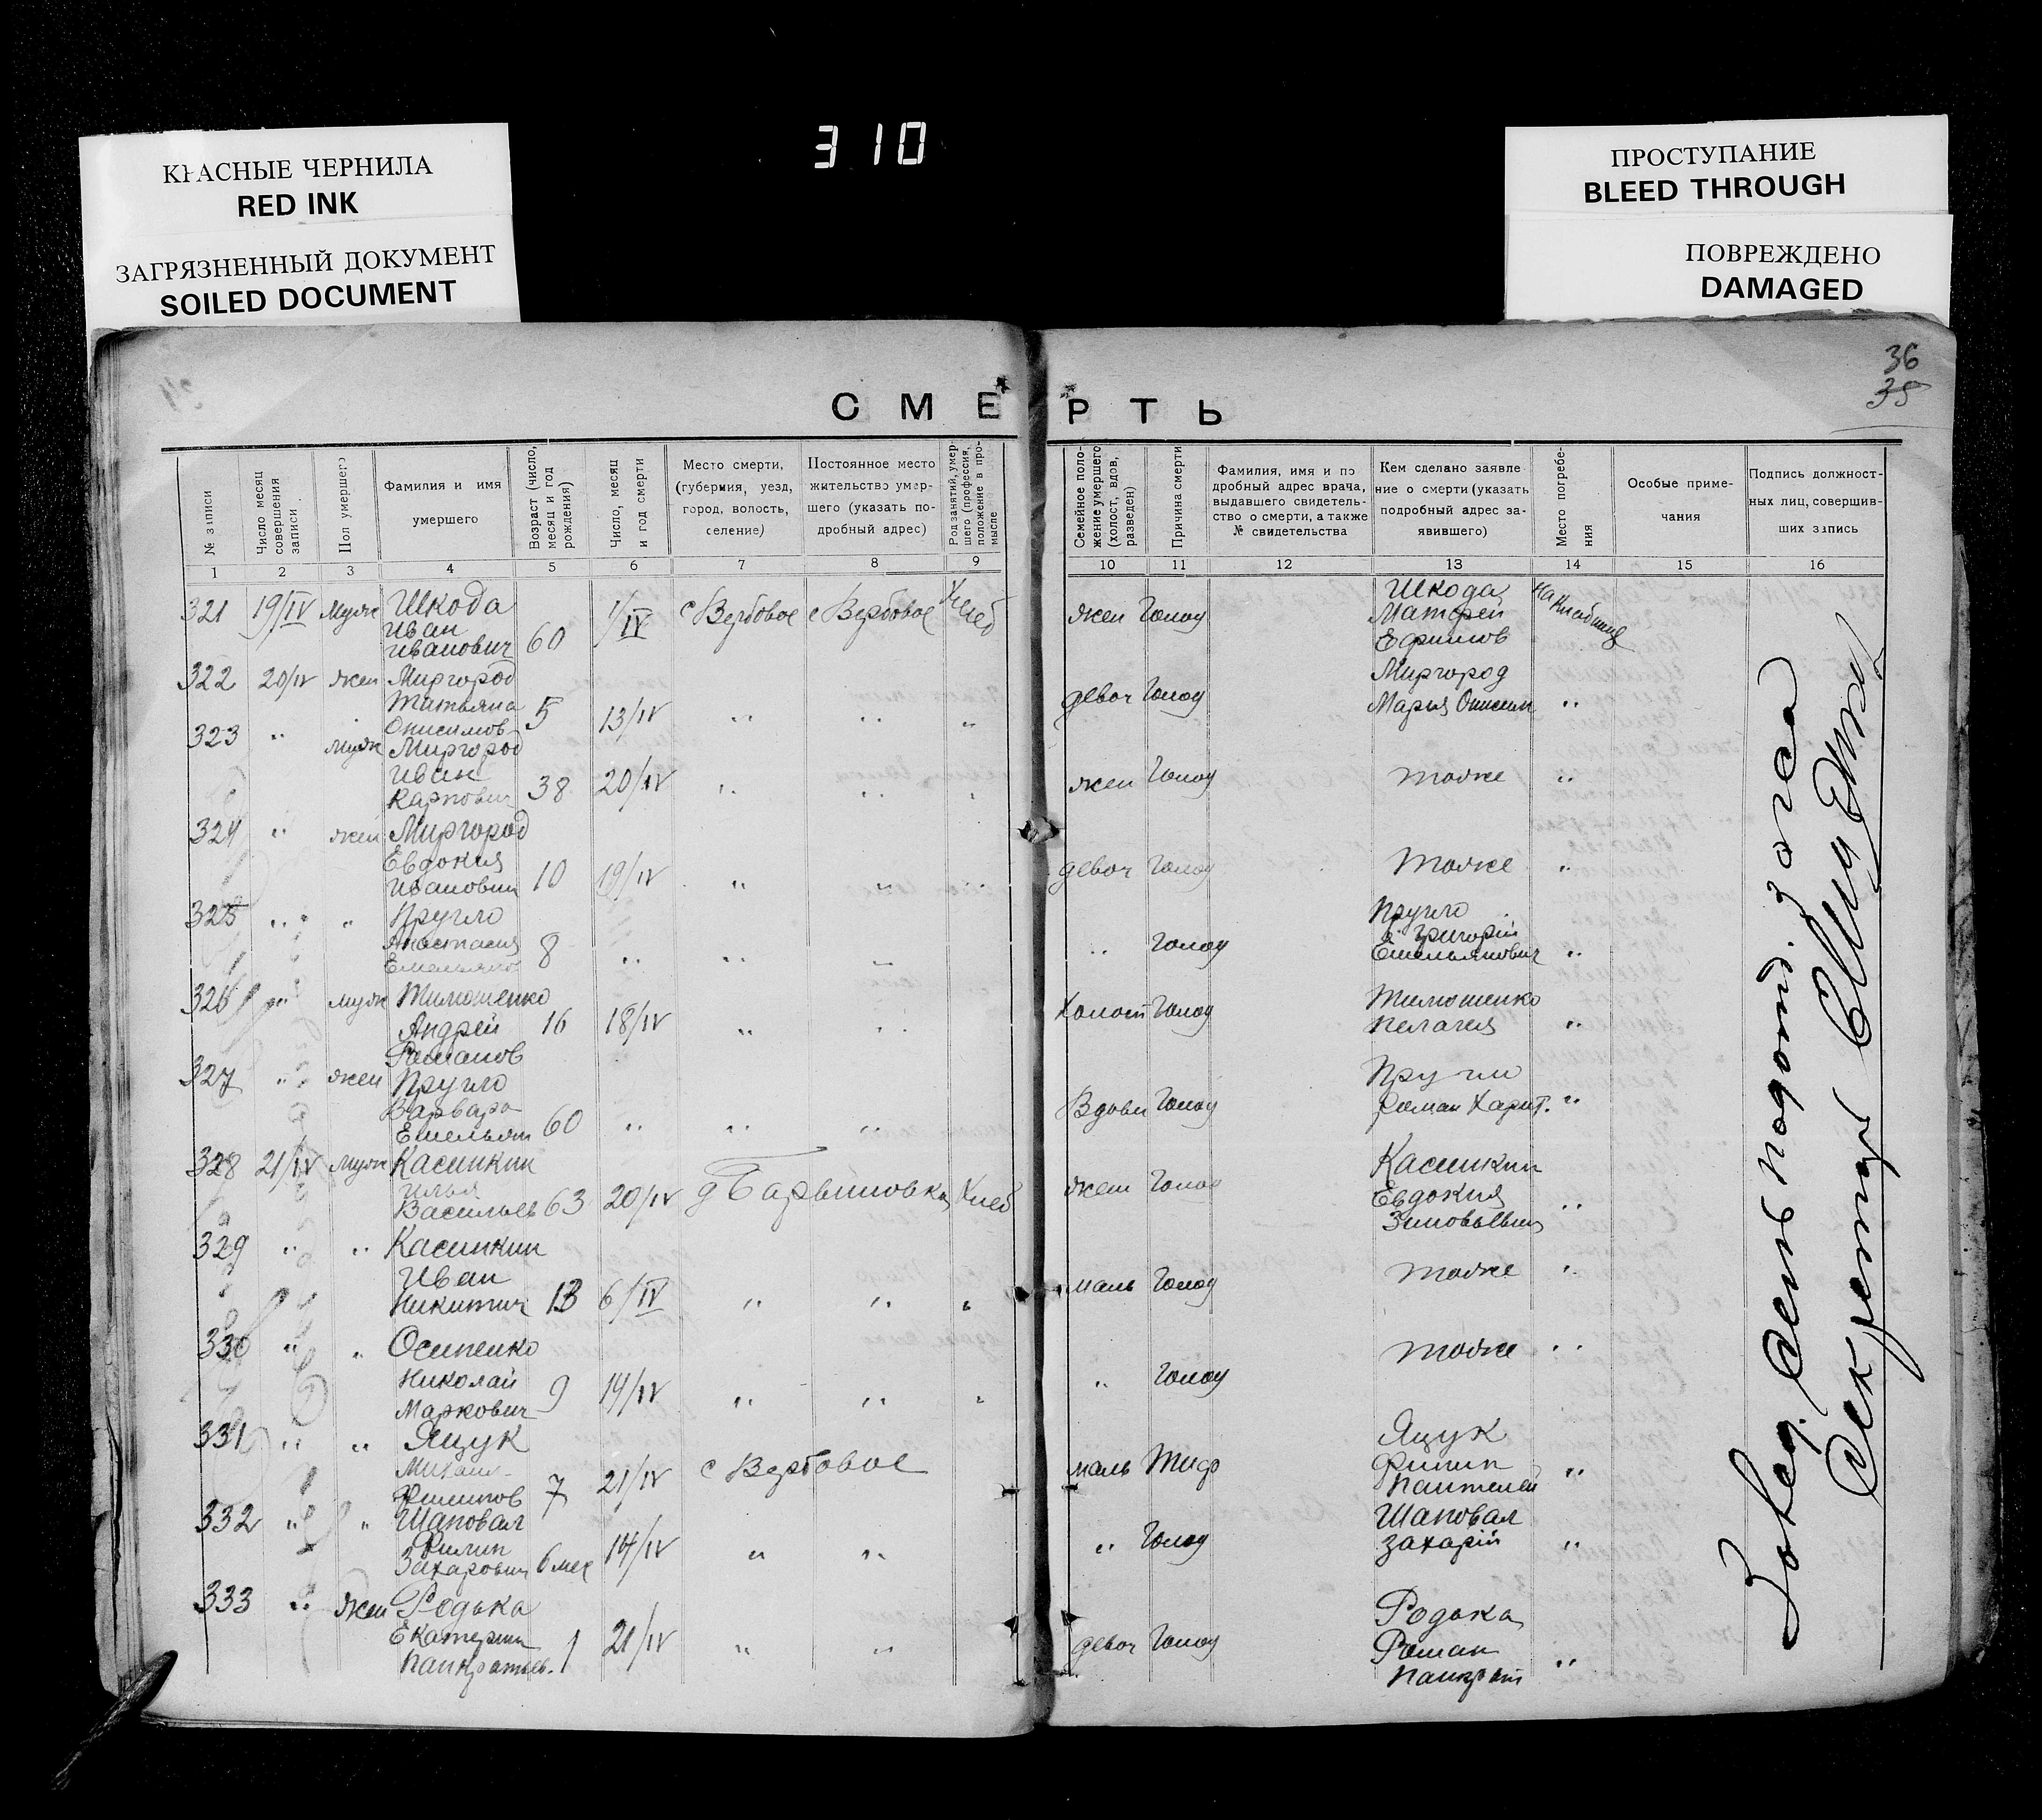 310
КРАСНЫЕ ЧЕРНИЛА
RED INK
ЗАГРЯЗНЕННЫЙ ДОКУМЕНТ
SOILED DOCUMENT
ПРОСТУПАНИЕ
BLEED THROUGH
ПОВРЕЖДЕНО
DAMAGED
36
35
СМЕРТЬ
№ записи
Число месяц совершения записи
Пол умершего
Фамилия и имя умершего
Возраст (число, месяц и год рождения)
Число, месяц и год смерти
Место смерти, (губерния, уезд, город, волость, селение)
Постоянное место жительство умершего (указать подробный адрес)
Род занятий, умершего (профессия, положение в промысле
Семейное положение умершего (холост, вдов, разведен)
Причина смерти
Фамилия, имя и подробный адрес врача, выдавшего свидетельство о смерти, а также № свидетельства
Кем сделано заявление о смерти (указать подробный адрес заявившего)
Место погребения
Особые примечания
Подпись должностных лиц, совершивших запись
1 2 3 4 5 6 7 8 9 10 11 12 13 14 15 16
321 19/IV Муж Шкода Иван Иванович 60 1/IV с Вербовое с Вербовое Хлеб жен Голод Шкода Матфей Ефимов на кладбище
322 20/IV жен Миргород Татьяна Онисимов 5 13/IV " " " девоч Голод Миргород Мария Онисим "
323 " Муж Миргород Иван Карпович 38 20/IV " " " жен Голод тоже "
324 " жен Миргород Евдокия Ивановны 10 19/IV " " " девоч Голод тоже "
325 " " Пругло Анастасия Емельянов 8 " " " " Голод Пругло Григорій Емельянович "
326 " муж Тимошенко Андрей Романов 16 18/IV " " Холост Голод Тимошенко Пелагея "
327 " жен Пругло Варвара Емельян 60 " " " Вдовы Голод Пругло Роман Харит. "
328 21/IV муж Касинкин Илья Васильев 63 20/IV д Барвиновка Хлеб жен Голод Касинкин Евдокия Зиновьевна "
329 " " Касинкин Иван Никитич 13 6/IV " " " маль Голод тоже "
330 " " Осипенко Николай Маркович 9 14/IV " " " " Голод тоже "
331 " " Ящук Михаил Филипов 7 21/IV с Вербовое маль Тиф Ящук Филип Пантелей "
332 " " Шаповал Филип Захарович 6 мес 14/IV " " " Голод Шаповал Захарій "
333 " жен Родька Екатерина Панкратьев. 1 21/IV " " девоч Голод Родька Роман Панкрат "
Завед. подотд. загса
Секретарь